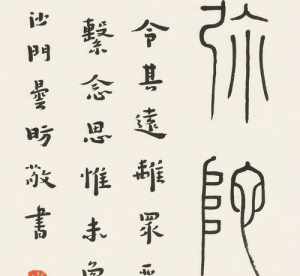 弥陀
令其遠離眾
繫念思惟未
沙門曇昉敬書